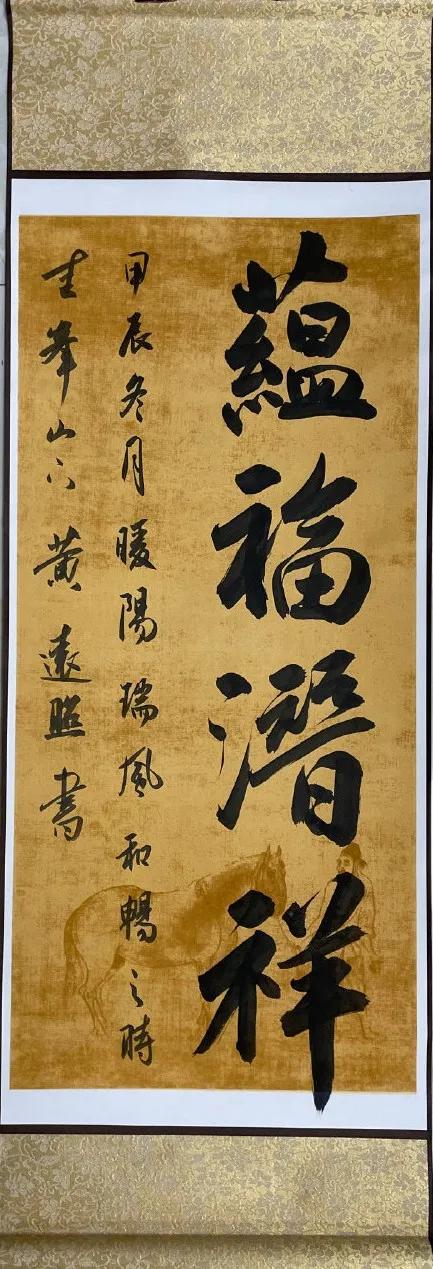 蘊福潛祥
甲辰冬月暖陽瑞風和暢之時
圭峯山下黃遠照書